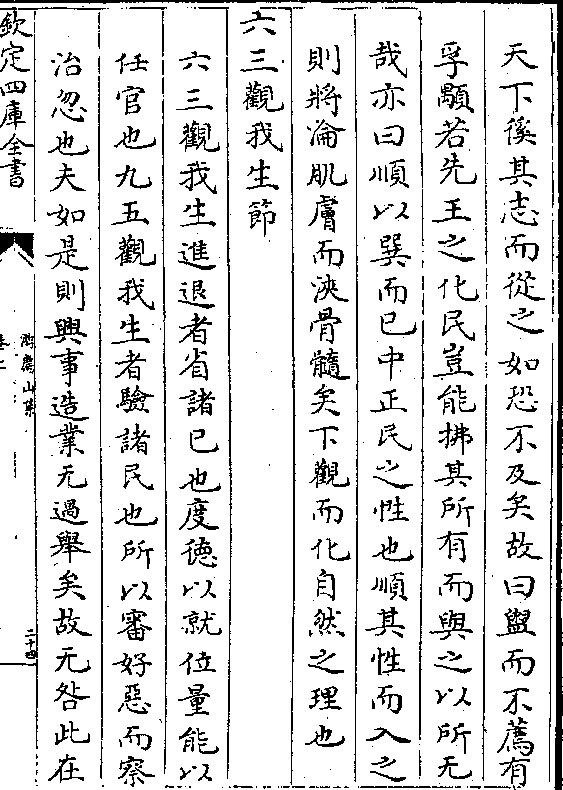 天下徯其志而從之如恐不及矣故曰盥而不薦有
孚顒若先王之化民豈能拂其所有而與之以所无
哉亦曰順以巽而已中正民之性也順其性而入之
則將淪肌膚而浹骨髓矣下觀而化自然之理也
六三觀我生節
六三觀我生進退者省諸已也度德以就位量能以
任官也九五觀我生者驗諸民也所以審好惡而察
治忽也夫如是則興事造業无過舉矣故无咎此在
欽定四庫全書
二十四